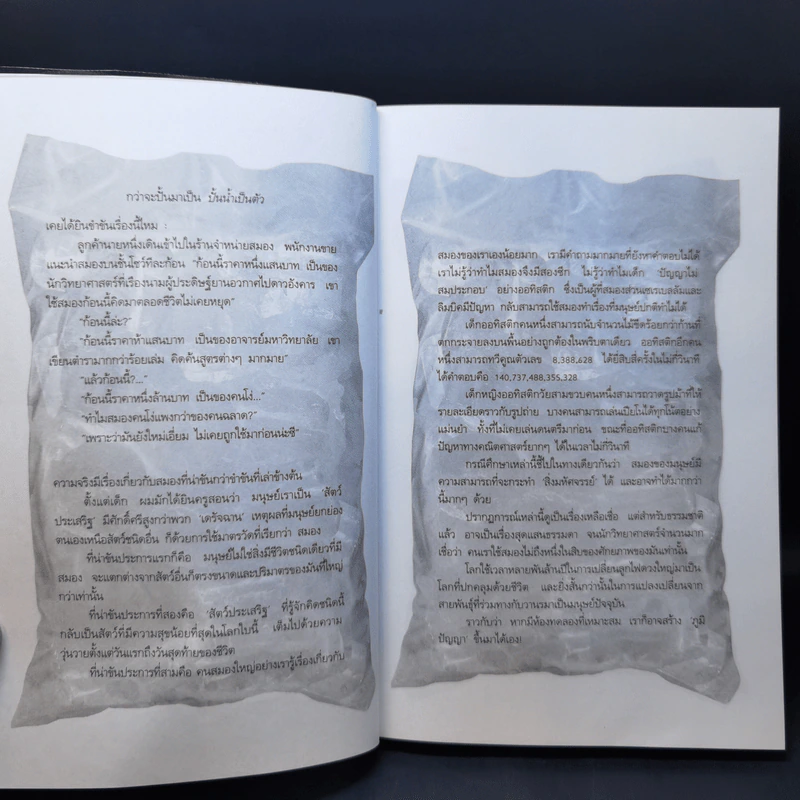 กว่าจะปั้นมาเป็น ปั้นน้ำเป็นตัว
เคยได้ยินขำขันเรื่องนี้ไหม :
ลูกค้านายหนึ่งเดินเข้าไปในร้านจำหน่ายสมอง พนักงานขาย
แนะนำสมองบนชั้นโชว์ทีละก้อน "ก้อนนี้ราคาหนึ่งแสนบาท เป็นของ
นักวิทยาศาสตร์ที่เรืองนามผู้ประดิษฐ์ยานอวกาศไปดาวอังคาร เขา
ใช้สมองก้อนนี้คิดมาตลอดชีวิตไม่เคยหยุด"
"ก้อนนี้ล่ะ?"
"ก้อนนี้ราคาห้าแสนบาท เป็นของอาจารย์มหาวิทยาลัย เขา
เขียนตำรามากกว่าร้อยเล่ม คิดค้นสูตรต่างๆ มากมาย"
"แล้วก้อนนี้?..."
"ก้อนนี้ราคาหนึ่งล้านบาท เป็นของคนโง่..."
"ทำไมสมองคนโง่แพงกว่าของคนฉลาด?"
"เพราะว่ามันยังใหม่เอี่ยม ไม่เคยถูกใช้มาก่อนน่ะซี"
ความจริงมีเรื่องเกี่ยวกับสมองที่น่าขันกว่าขำขันที่เล่าข้างต้น
ตั้งแต่เด็ก ผมมักได้ยินครูสอนว่า มนุษย์เราเป็น 'สัตว์
ประเสริฐ' มีศักดิ์ศรีสูงกว่าพวก 'เดรัจฉาน' เหตุผลที่มนุษย์ยกย่อง
ตนเองเหนือสัตว์ชนิดอื่น ก็ด้วยการใช้มาตรวัดที่เรียกว่า สมอง
ที่น่าขันประการแรกก็คือ มนุษย์ไม่ใช่สิ่งมีชีวิตชนิดเดียวที่มี
สมอง จะแตกต่างจากสัตว์อื่นก็ตรงขนาดและปริมาตรของมันที่ใหญ่
กว่าเท่านั้น
ที่น่าขันประการที่สองคือ 'สัตว์ประเสริฐ' ที่รู้จักคิดชนิดนี้
กลับเป็นสัตว์ที่มีความสุขน้อยที่สุดในโลกใบนี้ เต็มไปด้วยความ
วุ่นวายตั้งแต่วันแรกถึงวันสุดท้ายของชีวิต
ที่น่าขันประการที่สามคือ คนสมองใหญ่อย่างเรารู้เรื่องเกี่ยวกับ
สมองของเราเองน้อยมาก เรามีคำถามมากมายที่ยังหาคำตอบไม่ได้
เราไม่รู้ว่าทำไมสมองจึงมีสองซีก ไม่รู้ว่าทำไมเด็ก 'ปัญญาไม่
สมประกอบ' อย่างออทิสติก ซึ่งเป็นผู้ที่สมองส่วนเซเรเบลลัมและ
ลิมบิคมีปัญหา กลับสามารถใช้สมองทำเรื่องที่มนุษย์ปกติทำไม่ได้
เด็กออทิสติกคนหนึ่งสามารถนับจำนวนไม้ขีดร้อยกว่าก้านที่
ตกกระจายลงบนพื้นอย่างถูกต้องในพริบตาเดียว ออทิสติกอีกคน
หนึ่งสามารถทวีคูณตัวเลข 8,388,628 ได้ยี่สิบสี่ครั้งในไม่กี่วินาที
ได้คำตอบคือ 140,737,488,355,328
เด็กหญิงออทิสติกวัยสามขวบคนหนึ่งสามารถวาดรูปม้าที่ให้
รายละเอียดราวกับรูปถ่าย บางคนสามารถเล่นเปียโนได้ทุกโน้ตอย่าง
แม่นยำ ทั้งที่ไม่เคยเล่นดนตรีมาก่อน ขณะที่ออทิสติกบางคนแก้
ปัญหาทางคณิตศาสตร์ยากๆ ได้ในเวลาไม่กี่วินาที
กรณีศึกษาเหล่านี้ชี้ไปในทางเดียวกันว่า สมองของมนุษย์มี
ความสามารถที่จะกระทำ 'สิ่งมหัศจรรย์' ได้ และอาจทำได้มากกว่า
นี้มากๆ ด้วย
ปรากฏการณ์เหล่านี้ดูเป็นเรื่องเหลือเชื่อ แต่สำหรับธรรมชาติ
แล้ว อาจเป็นเรื่องสุดแสนธรรมดา จนนักวิทยาศาสตร์จำนวนมาก
เชื่อว่า คนเราใช้สมองไม่ถึงหนึ่งในสิบของศักยภาพของมันเท่านั้น
โลกใช้เวลาหลายพันล้านปีในการเปลี่ยนลูกไฟดวงใหญ่มาเป็น
โลกที่ปกคลุมด้วยชีวิต และยิ่งสั้นกว่านั้นในการแปลงเปลี่ยนจาก
สายพันธุ์ที่ร่วมทางกับวานรมาเป็นมนุษย์ปัจจุบัน
ราวกับว่า หากมีห้องทดลองที่เหมาะสม เราก็อาจสร้าง 'ภูมิ
ปัญญา' ขึ้นมาได้เอง!